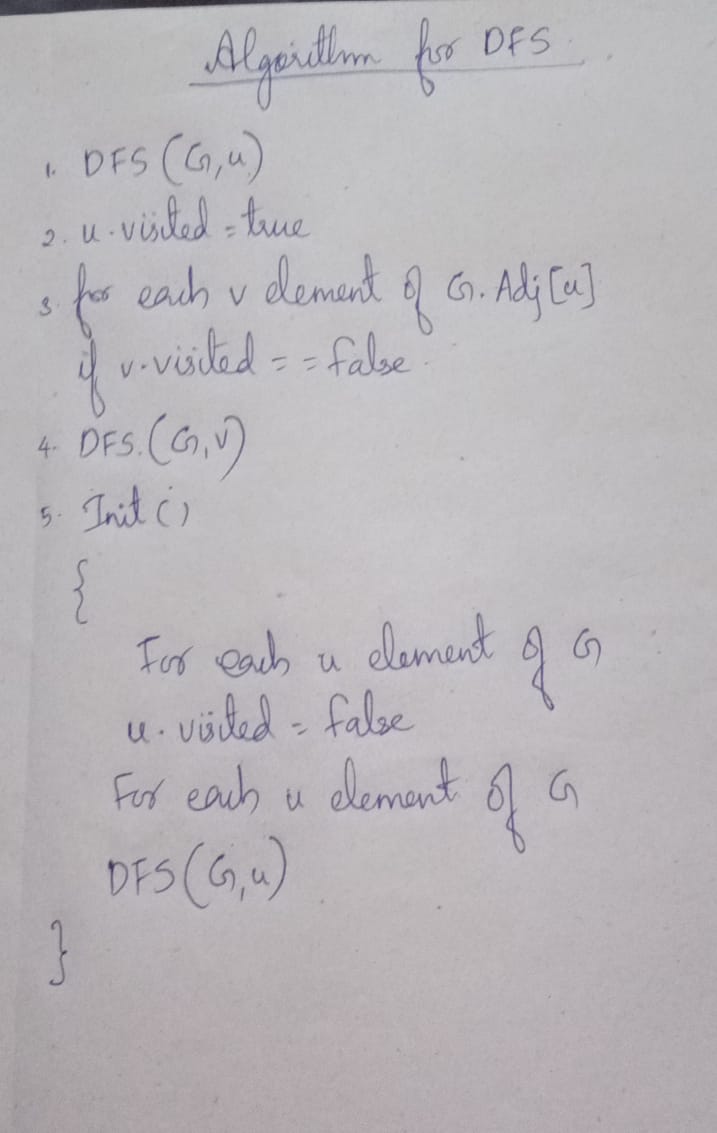 Algorithm for DFS
1. DFS (G,u)
2. u.visited = true
3. for each v element of G.Adj[u]
if v.visited == false.
4. DFS.(G,v)
5. Init ()
{
For each u element of G
u.visited = false
For each u element of G
DFS (G,u)
}